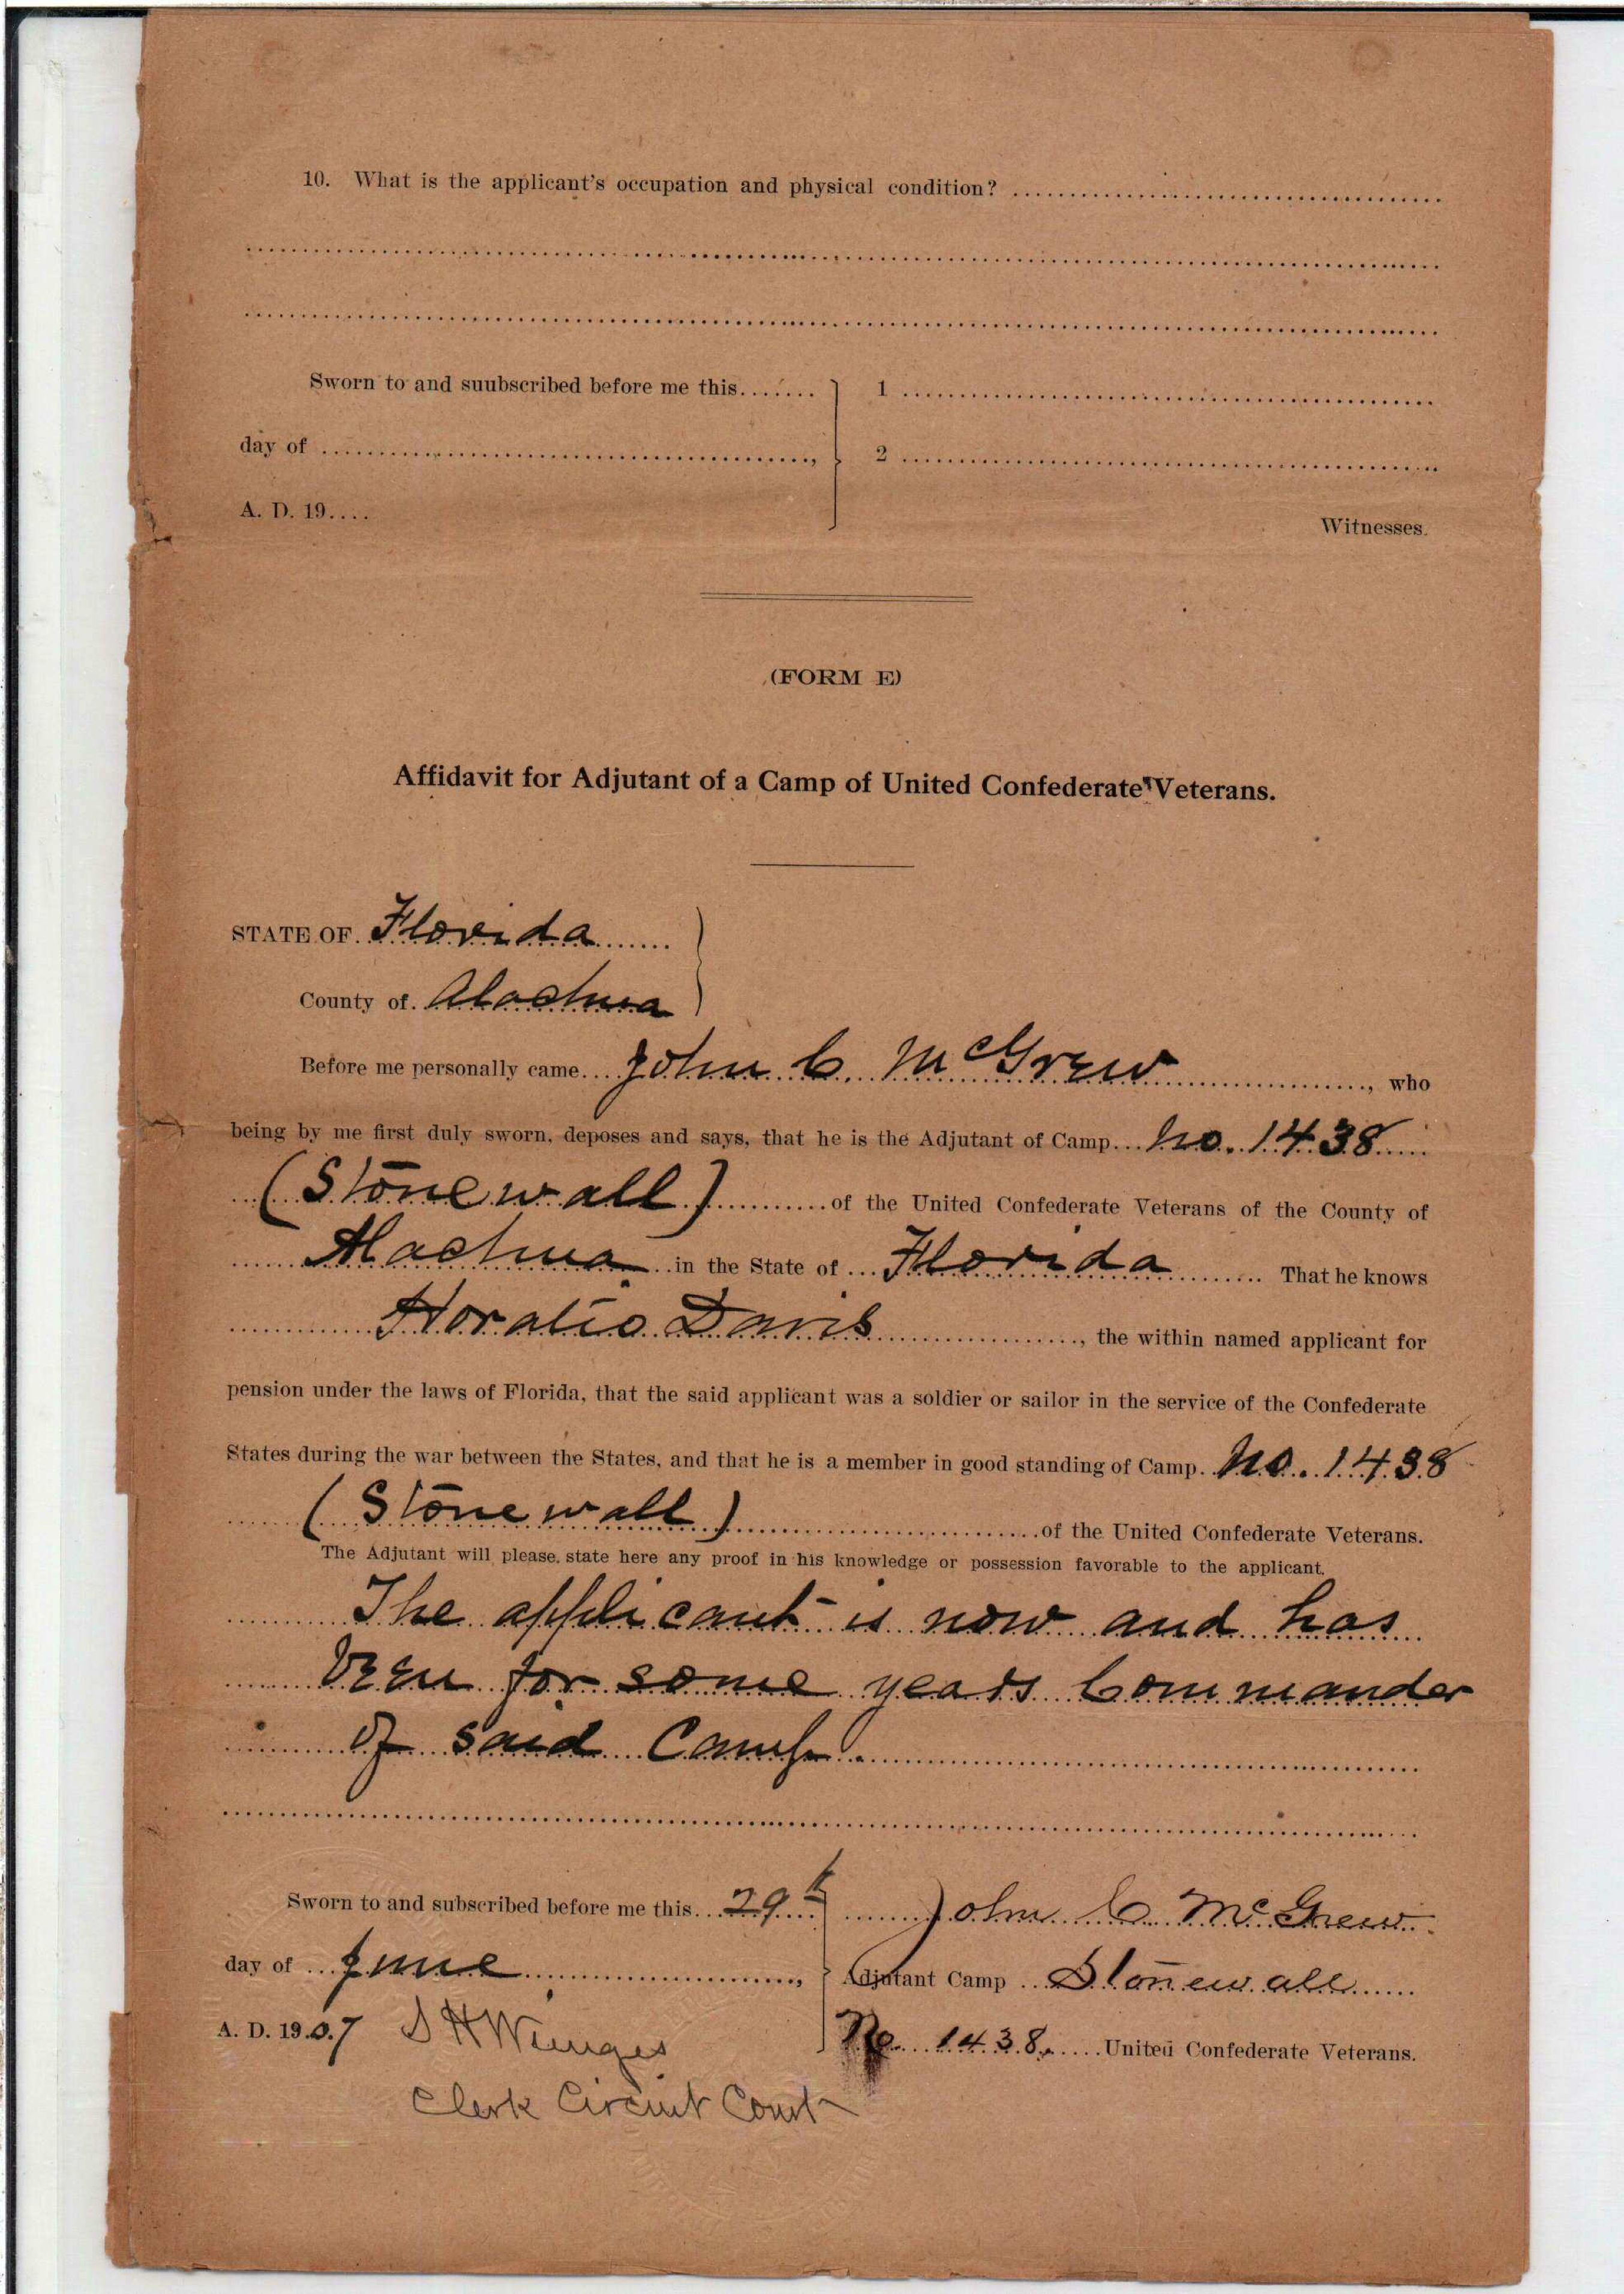 10. What is the applicant's occupation and physical condition?
Sworn to and suubscribed before me this
1
day of ,
2
A. D. 19....
Witnesses.
(FORM E)
Affidavit for Adjutant of a Camp of United Confederate Veterans.
STATE OF Florida
County of Alachua
Before me personally came John C. McGrew, who
being by me first duly sworn, deposes and says, that he is the Adjutant of Camp No. 1438
(Stonewall) of the United Confederate Veterans of the County of
Alachua in the State of Florida That he knows
Horatio Davis, the within named applicant for
pension under the laws of Florida, that the said applicant was a soldier or sailor in the service of the Confederate
States during the war between the States, and that he is a member in good standing of Camp No. 1438
(Stonewall) of the United Confederate Veterans.
The Adjutant will please state here any proof in his knowledge or possession favorable to the applicant.
The applicant is now and has
been for some years Commander
of said Camp.
Sworn to and subscribed before me this 29th
John C. McGrew
day of June,
Adjutant Camp Stonewall
A. D. 1907 S H Wienges
No. 1438. United Confederate Veterans.
Clerk Circuit Court